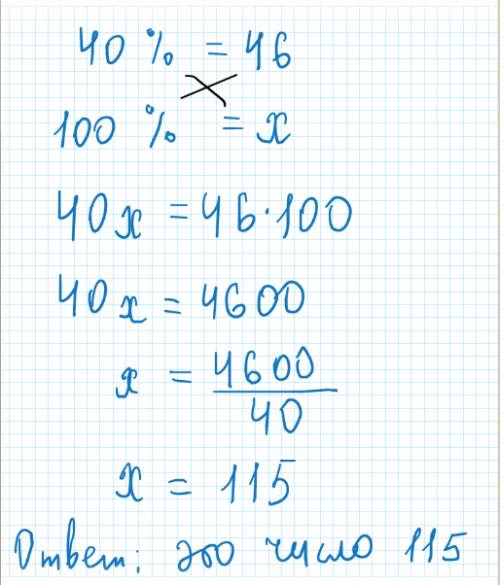 40 % = 46
100 % = x
40x = 46·100
40x = 4600
x = 4600/40
x = 115
Ответ: это число 115